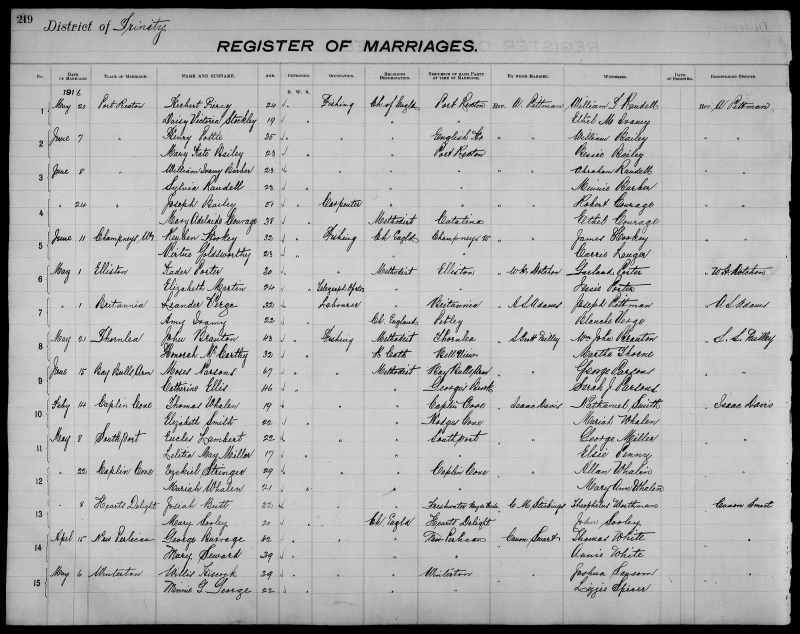 219
District of Trinity
REGISTER OF MARRIAGES.
No. DATE OF MARRIAGE. PLACE OF MARRIAGE. NAME AND SURNAME. AGE. CONDITION. OCCUPATION. RELIGIOUS DENOMINATION. RESIDENCE OF EACH PARTY AT TIME OF MARRIAGE. BY WHOM MARRIED. WITNESSES. DATE OF REGISTRY. REGISTERING OFFICER.
1916 B. W. S.
1 May 20 Port Rexton Herbert Piercy 24 Fishing Ch of Engld Port Rexton Rev. W. Pittman William J Randell Rev. W Pittman
Daisy Victoria Stockley 19 " " " Ethel M Ivamy
2 June 7 " Henry Pottle 25 " " English Hr " William Bailey
Mary Kate Bailey 23 " " Port Rexton Bessie Bailey
3 June 8 " William Ivamy Barber 23 " " " " Abraham Randell
Sylvia Randell 23 " " " Minnie Barber
4 " 24 " Joseph Bailey 51 Carpenter " " " Robert Courage
Mary Adelaide Courage 38 Methodist Catalina Ethel Courage
5 June 11 Champneys, W. Reuben Hookey 32 Fishing Ch Engld Champneys W " James Hookey
Virtue Goldsworthy 23 " " " Carrie
6 May 1 Elliston Porter 30 " Methodist Elliston " Garland Porter
Elizabeth Martin 24 Telegraph " " Jessie Porter
7 " 1 Britannia Leander Verge 32 Labourer " Britannia " A. S. Adams Joseph Pittman A. S. Adams
Amy Ivamy 22 " Ch. England Petley Blanche Verge
8 May 21 Thornlea John Branton 43 Fishing Methodist Thornlea Wm John Branton
Honorah McCarthy 32 " R Cath Bell View Martha Thorne
9 June 15 Bay Bulls Arm Moses Parsons 67 " Methodist Bay Bulls Arm " " George Parsons
Catherine Ellis 46 " " George's Brook Sarah J. Parsons
10 Feby 14 Caplin Cove Thomas Whalen 19 " " Caplin Cove " Isaac Davis Nathaniel Smith Isaac Davis
Elizabeth Smith 22 " " Hodges Cove Mariah Whalen
11 May 8 South Port Lambert 22 " " Southport " " George Miller
Letitia May Miller 17 " " " Elsie Penny
12 " 22 Caplin Cove Ezekiel Stringer 29 " " Caplin Cove " " Allan Whalen
Mariah Whalen 21 " " " Mary Ann Whalen
13 " 8 Hearts Delight Josiah Butt 32 " " Freshwater " C. M. Stickings Theophelus Canon Smart
Mary Sooley 20 " Ch Engld Hearts Delight John Sooley
14 April 15 New Perlican George Burrage 62 " " New Perlican " Canon Smart Thomas White
Mary Seward 39 " " " Annie White
15 May 6 Winterton Willis Hiscock 29 " " Winterton " " Joshua
Minnie G George 22 " " " Lizzie Spicer